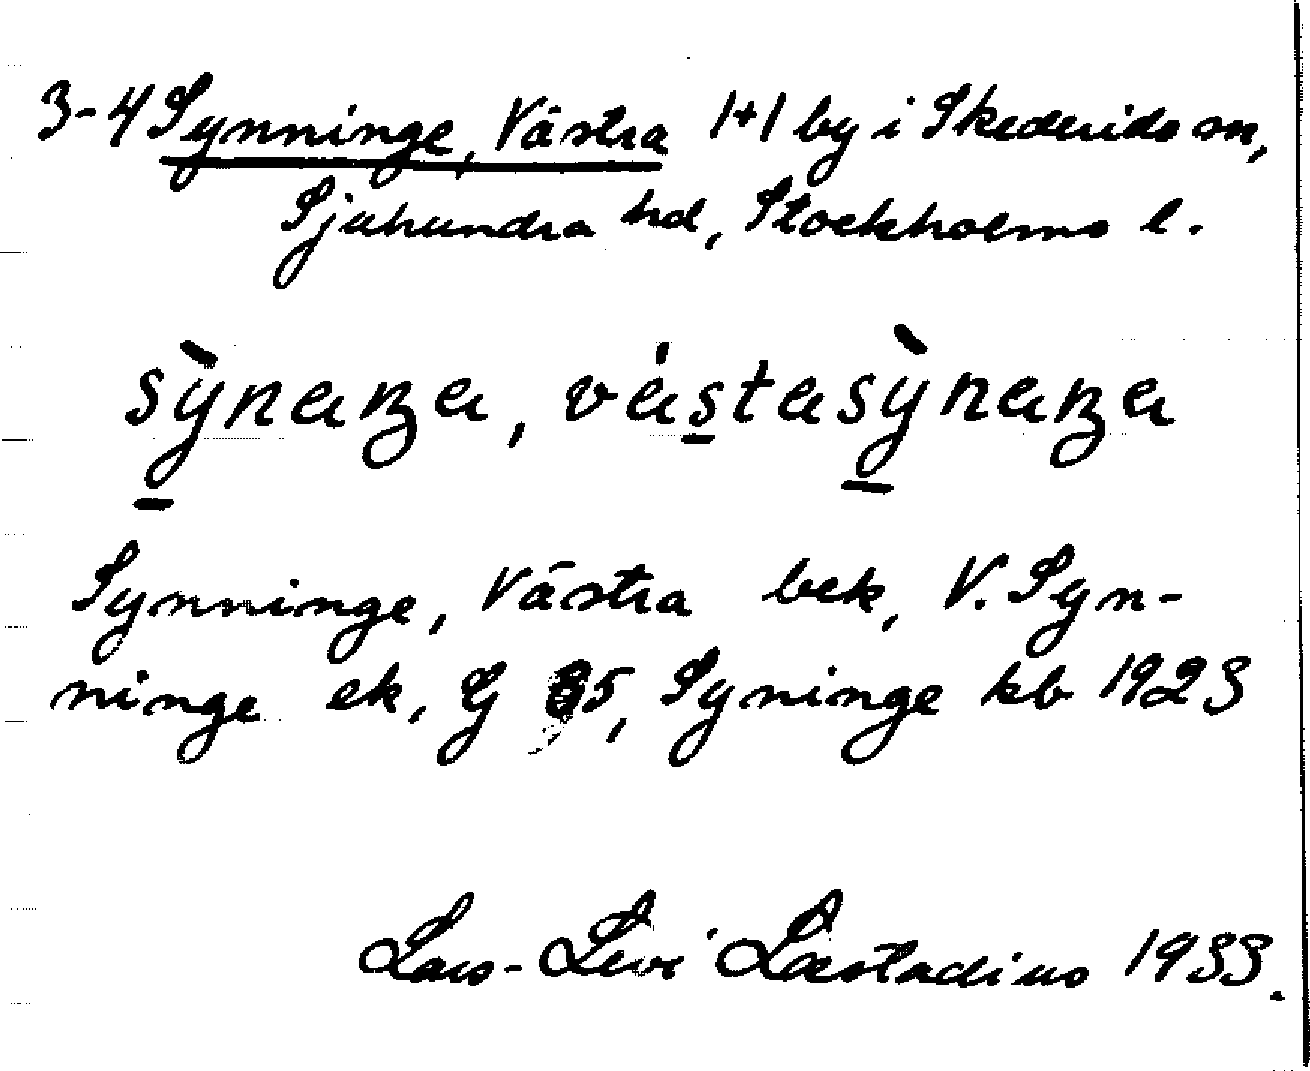 3-4 Synninge, Västra 1+1 by i Skederids sn,
Sjuhundra hd, Stockholms l.
sỳnaŋa, västasỳnaŋa
Synninge, Västra bek, V. Syn-
ninge ek, G 35, Syninge kb 1923
Lars-Levi Læstadius 1933.